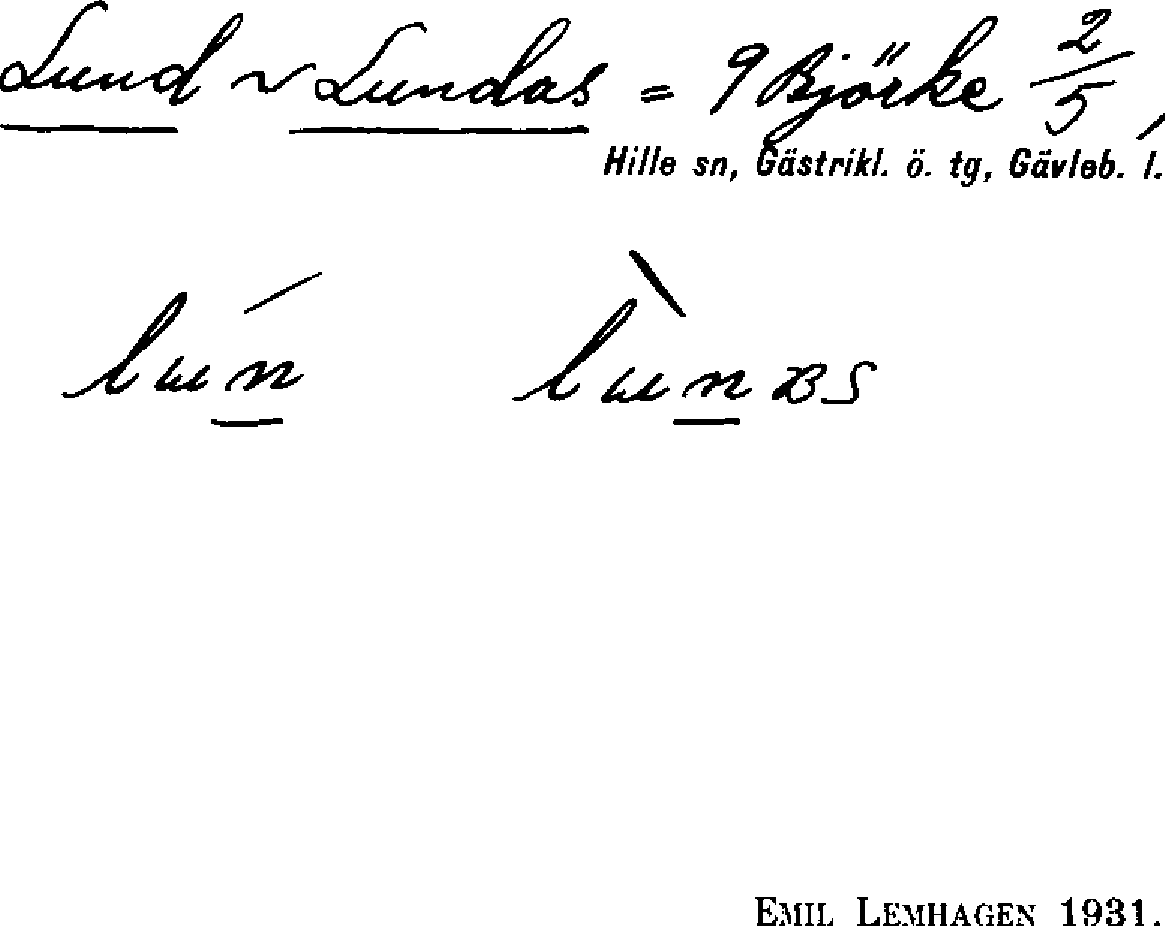 Lund ~ Lundas = 9 Björke 2/5,
Hille sn, Gästrikl. ö. tg, Gävleb. l.
EMIL LEMHAGEN 1931.